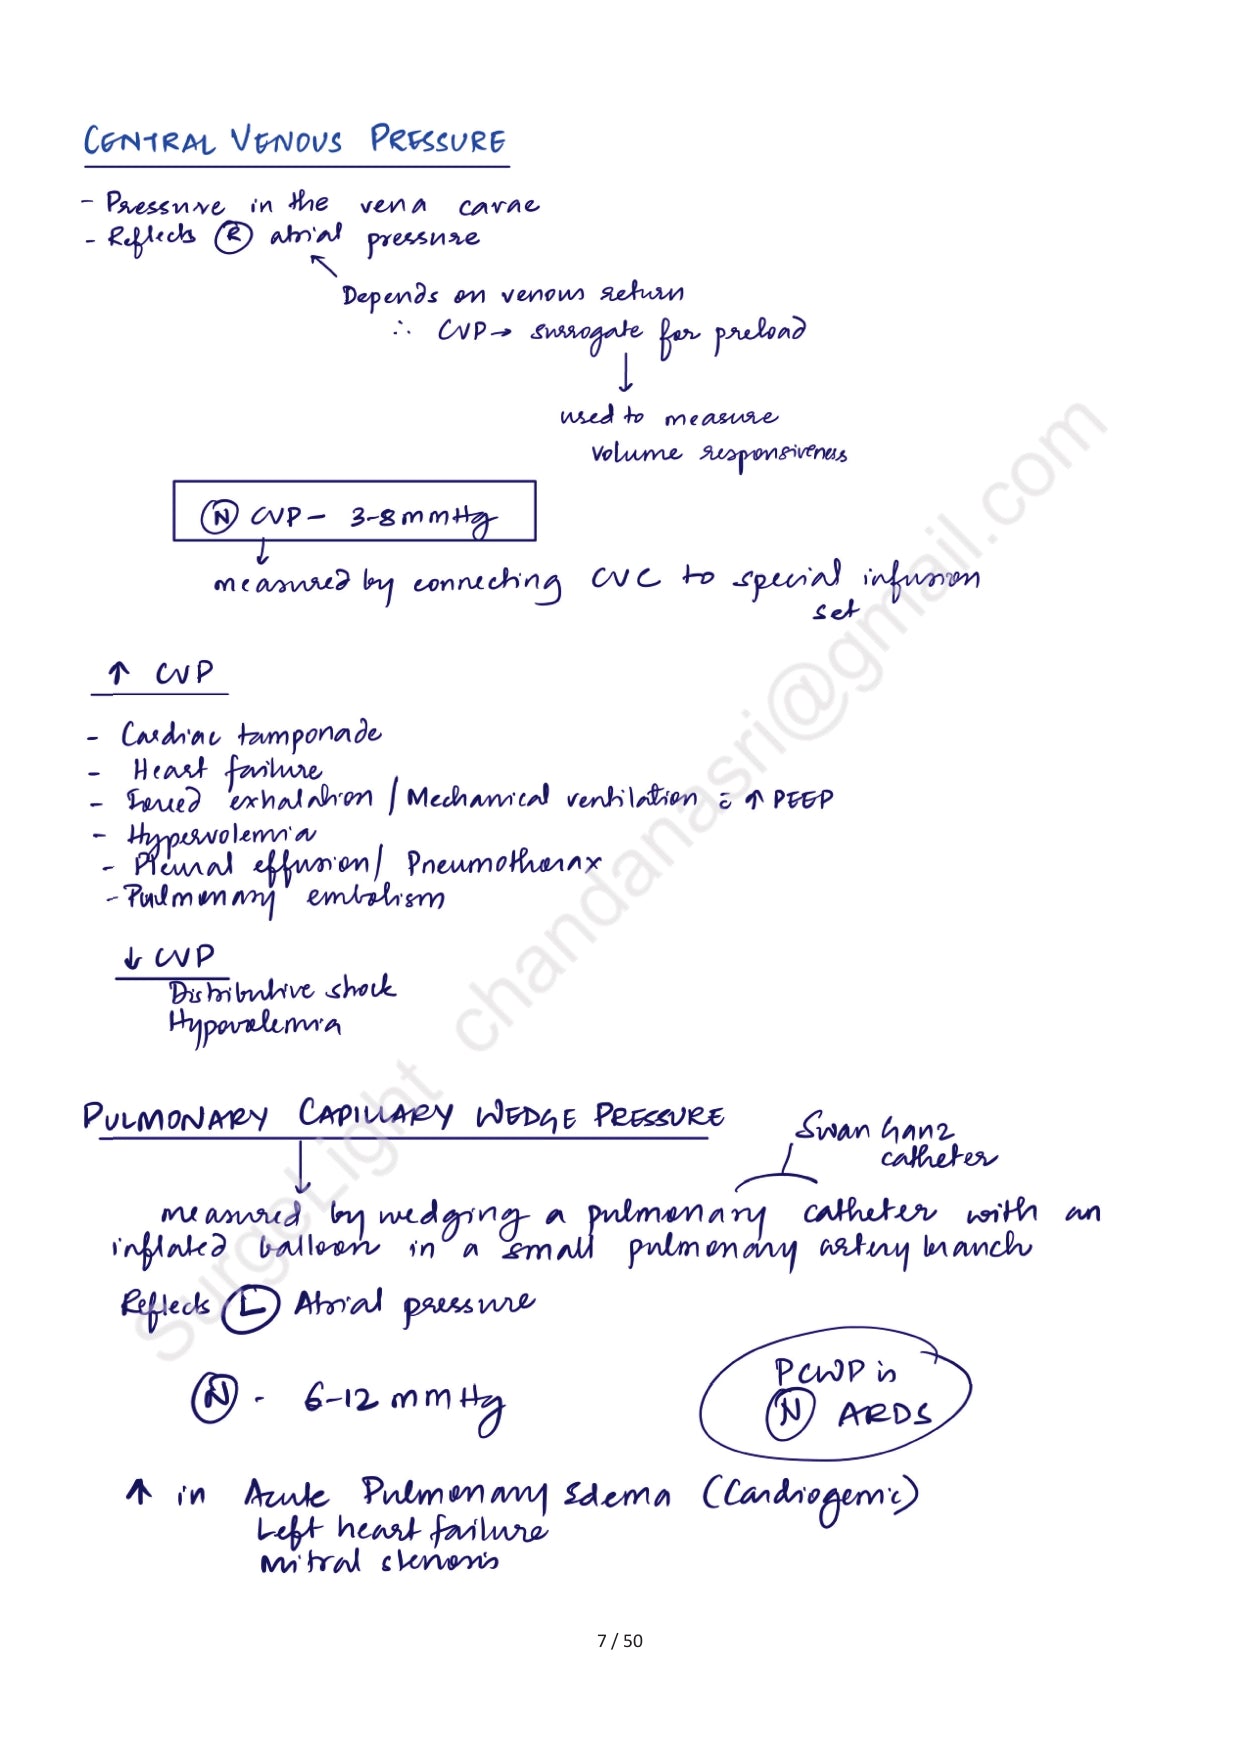 CENTRAL VENOUS PRESSURE
- Pressure in the vena cavae
- Reflects Ⓡ atrial pressure
Depends on venous return
∴ CVP → surrogate for preload
used to measure
volume responsiveness
Ⓝ CVP - 3-8 mmHg
measured by connecting CVC to special infusion
set
↑ CVP
- Cardiac tamponade
- Heart failure
- Forced exhalation / Mechanical ventilation c̄ ↑ PEEP
- Hypervolemia
- Pleural effusion / Pneumothorax
- Pulmonary embolism
↓ CVP
Distributive shock
Hypovolemia
PULMONARY CAPILLARY WEDGE PRESSURE
Swan Ganz
catheter
measured by wedging a pulmonary catheter with an
inflated balloon in a small pulmonary artery branch
Reflects Ⓛ Atrial pressure
Ⓝ - 6-12 mmHg
PCWP is
Ⓝ ARDS
↑ in Acute Pulmonary Edema (Cardiogenic)
Left heart failure
Mitral stenosis
SurgeLight chandanasri@gmail.com
7 / 50